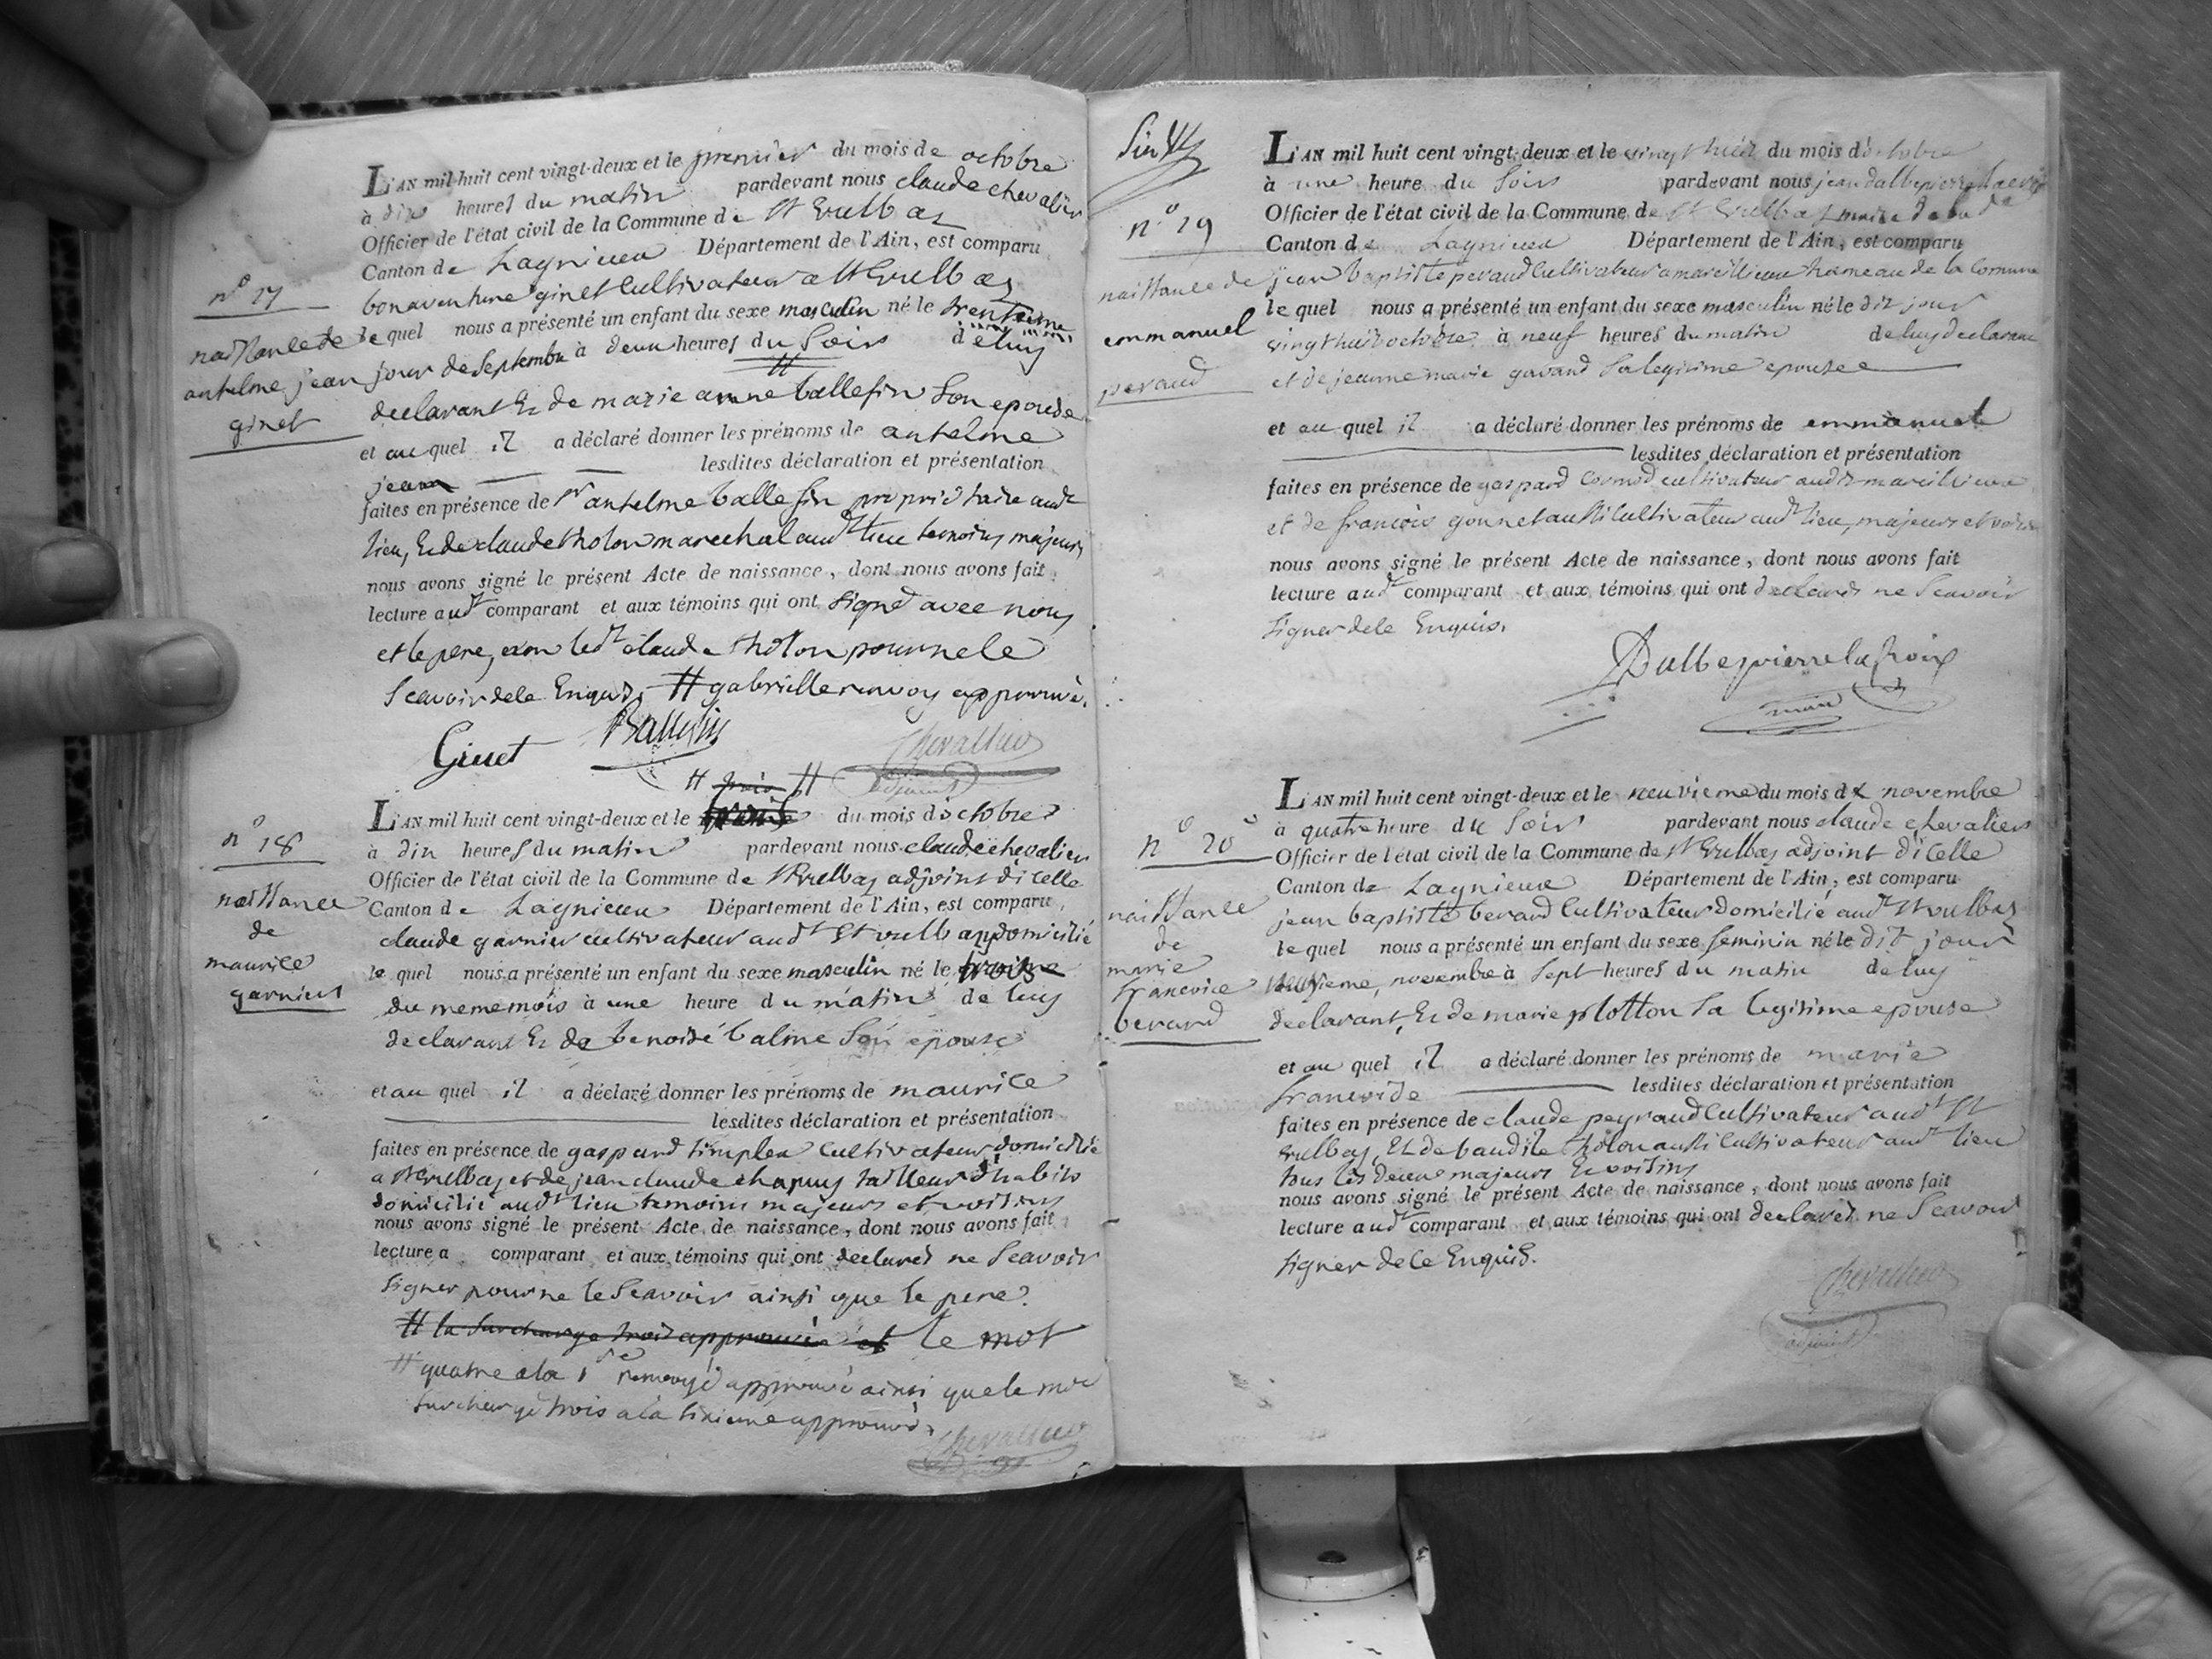 L'AN mil huit cent vingt-deux et le premier du mois de octobre
à dix heures du matin pardevant nous claude chevalier
Officier de l'état civil de la Commune de St Vulbas
Canton de Lagnieu Département de l'Ain, est comparu
n° 17
bonaventure ginet Cultivateur a St Vulbas
le quel nous a présenté un enfant du sexe masculin né le trentieme
naissance de
jour de Septembre à deux heures du Soir de luy
antelme jean
ginet
declarant & de marie anne ballefin Son epouse
et au quel il a déclaré donner les prénoms de antelme
jean lesdites déclaration et présentation
faites en présence de Sr antelme ballefin propriétaire audt
lieu, & de claude tholon marechal audt lieu temoins majeurs
nous avons signé le présent Acte de naissance, dont nous avons fait
lecture audt comparant et aux témoins qui ont signé avec nous
et le pere, non ledt claude tholon pour ne le
Scavoir de le Enquis, # gabrielle renvoy approuvé.
Ginet Ballefin Chevallier
adjoint
# trois #
L'AN mil huit cent vingt-deux et le du mois d'octobre
n° 18
à dix heures du matin pardevant nous claude chevalier
Officier de l'état civil de la Commune de St Vulbas adjoint dicelle
naissance
de
maurice
garnier
Canton de Lagnieu Département de l'Ain, est comparu
claude garnier cultivateur audt St vulbas y domicilié
le quel nous a présenté un enfant du sexe masculin né le trois
du meme mois à une heure du matin de luy
declarant & de benoite balme Son epouse
et au quel il a déclaré donner les prénoms de maurice
lesdites déclaration et présentation
faites en présence de gaspard simplex Cultivateur domicilié
a St Vulbas et de jean claude chapuy tailleur d'habits
domicilié audt lieu temoins majeurs et voisins
nous avons signé le présent Acte de naissance, dont nous avons fait
lecture a comparant et aux témoins qui ont declarés ne Scavoir
signer pour ne le Scavoir ainsi que le pere.
# la Surcharge trois approuvée et le mot
# quatre a la 1re renvoyé approuvé ainsi que le mot
surchargé trois a la sixieme approuvé.
Chevallier
n° 19
naissance de
emmanuel
peraud
L'AN mil huit cent vingt-deux et le vingt huit du mois d'octobre
à une heure du Soir pardevant nous jean dalbepierre lacroix
Officier de l'état civil de la Commune de St Vulbas maire de la de
Canton de Lagnieu Département de l'Ain, est comparu
jean baptiste peraud Cultivateur a marcillieux hameau de la Comune
le quel nous a présenté un enfant du sexe masculin né le dit jour
vingt huit octobre à neuf heures du matin de luy declarant
et de jeanne marie gavand Sa legitime epouse
et au quel il a déclaré donner les prénoms de emmanuel
lesdites déclaration et présentation
faites en présence de gaspard Cormod cultivateur audit marcillieux
et de francois gonnet aussi Cultivateur audt lieu, majeurs et voisins
nous avons signé le présent Acte de naissance, dont nous avons fait
lecture audt comparant et aux témoins qui ont declarés ne Scavoir
signer de le Enquis.
Dalbepierre lacroix
maire
n° 20
naissance
de
marie
francoise
berard
L'AN mil huit cent vingt-deux et le neuvieme du mois de novembre
à quatre heure du Soir pardevant nous claude chevalier
Officier de l'état civil de la Commune de St Vulbas adjoint dicelle
Canton de Lagnieux Département de l'Ain, est comparu
jean baptiste berard Cultivateur domicilié audt St vulbas
le quel nous a présenté un enfant du sexe feminin né le dit jour
neuvieme, novembre à Sept heures du matin de luy
declarant, & de marie plotton Sa legitime epouse
et au quel il a déclaré donner les prénoms de marie
francoise lesdites déclaration et présentation
faites en présence de claude peyraud Cultivateur audt St
vulbas, Et de baudile tholon aussi Cultivateur audt lieu
tous les deux majeurs & voisins
nous avons signé le présent Acte de naissance, dont nous avons fait
lecture audt comparant et aux témoins qui ont declarés ne Scavoir
signer de le Enquis.
Chevallier
adjoint